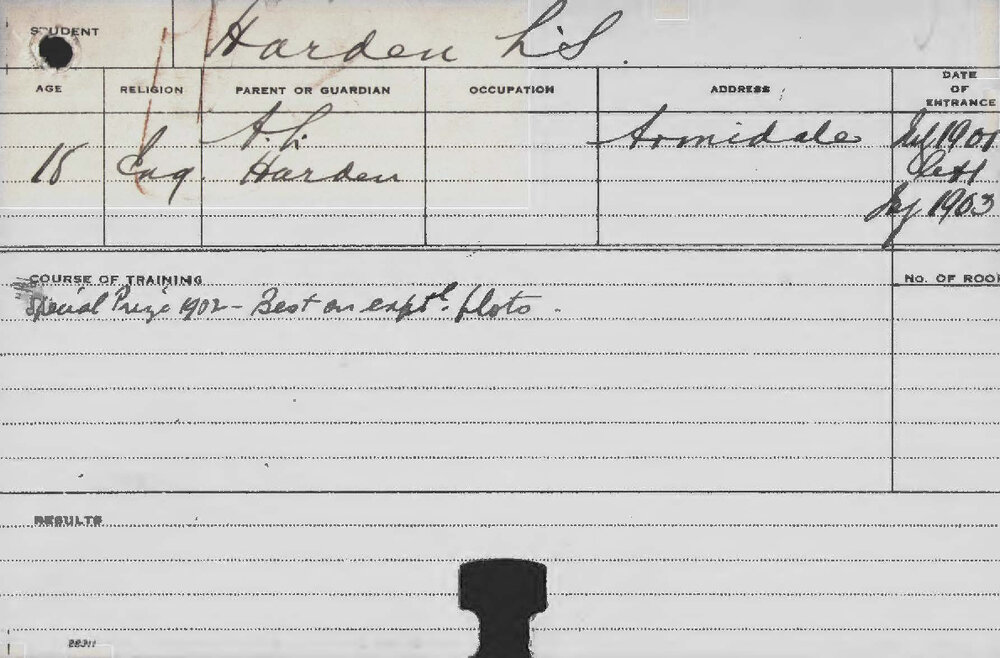 STUDENT Harden L.S.
AGE RELIGION PARENT OR GUARDIAN OCCUPATION ADDRESS DATE OF ENTRANCE
A. L. Armidale Jul 1901
18 Eng. Harden Left
1903
COURSE OF TRAINING No. OF ROO
Special Prize 1902 - Best on exptl. plots.
RESULTS